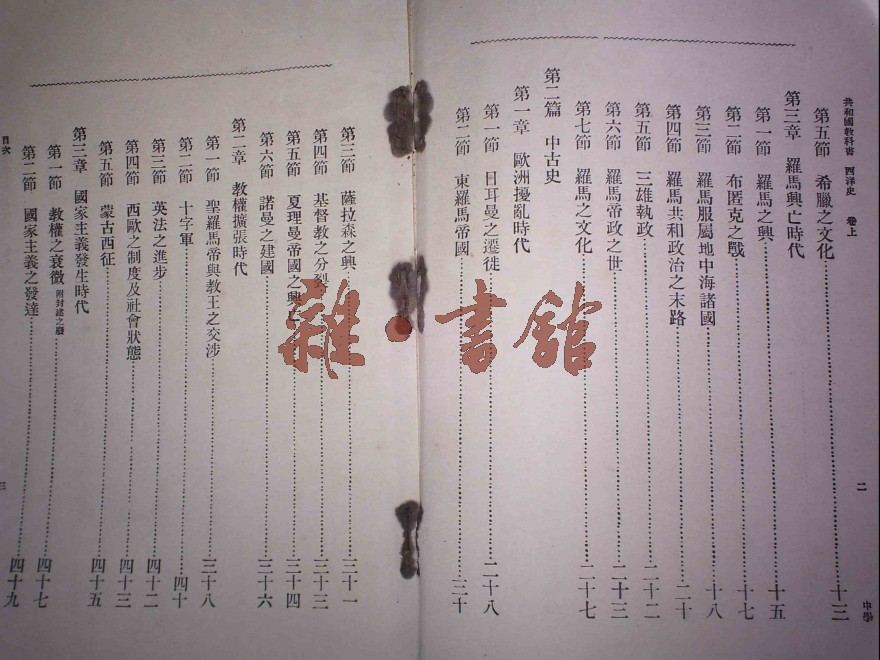 共和國教科書 西洋史 卷上
二
中學
第五節 希臘之文化 十三
第三章 羅馬興亡時代
第一節 羅馬之興 十五
第二節 布匿克之戰 十七
第三節 羅馬服屬地中海諸國 十八
第四節 羅馬共和政治之末路 二十
第五節 三雄執政 二十二
第六節 羅馬帝政之世 二十三
第七節 羅馬之文化 二十七
第二篇 中古史
第一章 歐洲擾亂時代
第一節 日耳曼之遷徙 二十八
第二節 東羅馬帝國 三十
第三節 薩拉森之興 三十一
第四節 基督教之分裂 三十三
第五節 夏理曼帝國之興亡 三十四
第六節 諾曼之建國 三十六
第二章 教權擴張時代
第一節 聖羅馬帝與教王之交涉 三十八
第二節 十字軍 四十
第三節 英法之進步 四十二
第四節 西歐之制度及社會狀態 四十三
第五節 蒙古西征 四十五
第三章 國家主義發生時代
第一節 教權之衰微 附封建之廢 四十七
第二節 國家主義之發達 四十九
目次
三
雜·書館